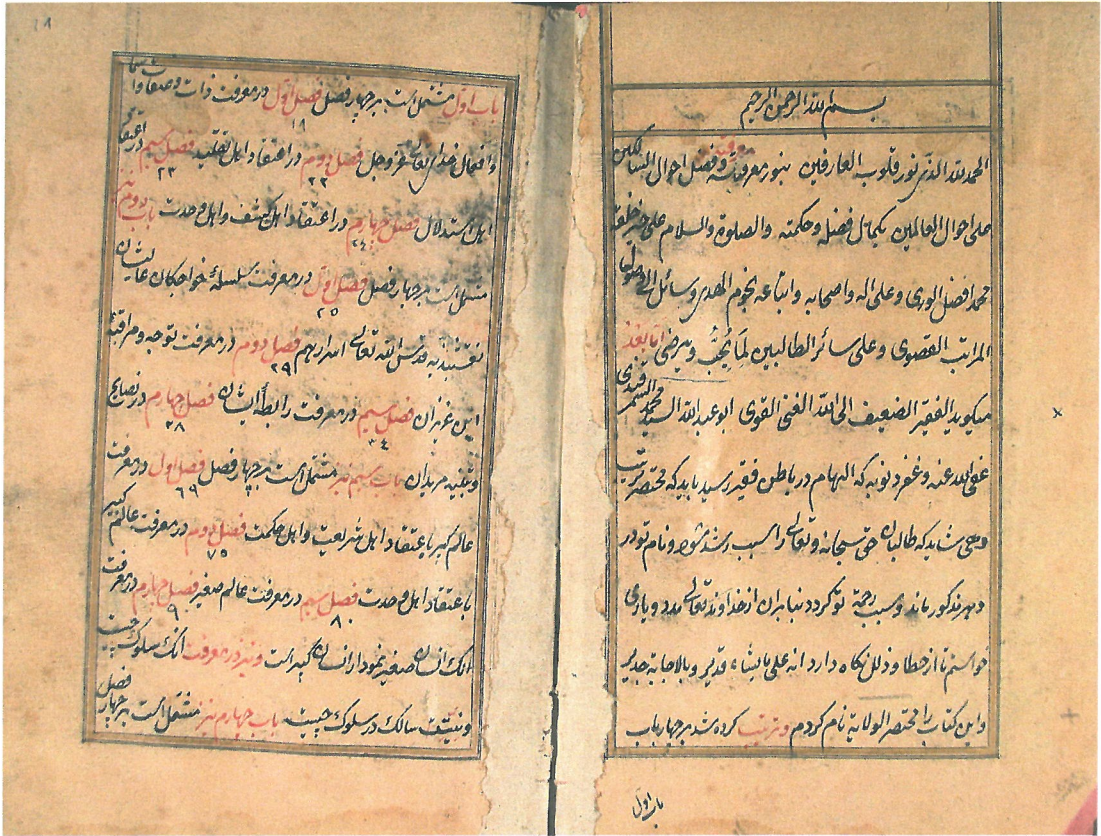 بسم الله الرحمن الرحیم
الحمد لله الذی نور قلوب العارفین بنور معرفته و فضل احوال السالکین
علی احوال العالمین بکمال فضله وحکمته والصلوة والسلام علی خیر خلقه
محمد افضل الوری وعلی اله واصحابه واتباعه نجوم الهدی وسائل
المراتب القصوی وعلی سائر الطالبین لما یحب ویرضی اما بعد
میکوید الفقیر الضعیف الی الله الغنی القوی ابو عبد الله السید محمد السمرقندی
عفی الله عنه وغفر ذنوبه که الهام در باطن فقیر رسید باید که مختصر ترتیب
دهی شاید که طالبان حق سبحانه وتعالی را سبب رشد شود و نام تو در
دهر مذکور ماند و سبب رحمة تو کردد بنابران از خداوند تعالی مدد ویاری
خواستم تا از خطا وزلل نکاه دارد انه علی ما یشاء قدیر وبالاجابة جدیر
واین کتاب را مختصر الولایة نام کردم و ترتیب کرده شد بر چهار باب
باب اول
باب اول مشتمل است بر چهار فصل فصل اول در معرفت ذات وصفات واسما
۱۸
وافعال خدای تعالی عز وجل فصل دوم در اعتقاد اهل تقلید فصل سیم در اعتقاد
۲۲ ۲۳
اهل استدلال فصل چهارم در اعتقاد اهل کشف واهل وحدت باب دوم نیز
۲٤
مشتمل است بر چهار فصل فصل اول در معرفت سلسلهٔ خواجکان عالیشان
۲٥
نقشبندیه قدس الله تعالی اسرارهم فصل دوم در معرفت توجه ومراقبهٔ
۲۹
این عزیزان فصل سیم در معرفت رابطهٔ ایشان فصل چهارم در نصایح
۳٤ ۳۸
وتلقین مریدان باب سیم نیز مشتمل است بر چهار فصل فصل اول در معرفت
٦۹
عالم کبیر باعتقاد اهل شریعت واهل حکمت فصل دوم در معرفت عالم کبیر
۷٥
باعتقاد اهل وحدت فصل سیم در معرفت عالم صغیر فصل چهارم در معرفت
۸۰ ۹
انک انسان صغیر نمودار انسان کبیر است و نیز در معرفت انک سلوک چیست
ونیت سالک در سلوک چیست باب چهارم نیز مشتمل است بر چهار فصل